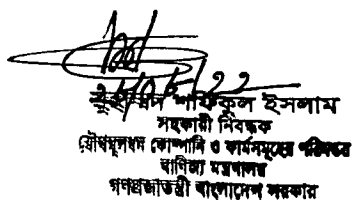 শফিকুল ইসলাম
সহকারী নিবন্ধক
যৌথমূলধন কোম্পানি ও ফার্মসমূহের পরিদপ্তর
বাণিজ্য মন্ত্রণালয়
গণপ্রজাতন্ত্রী বাংলাদেশ সরকার